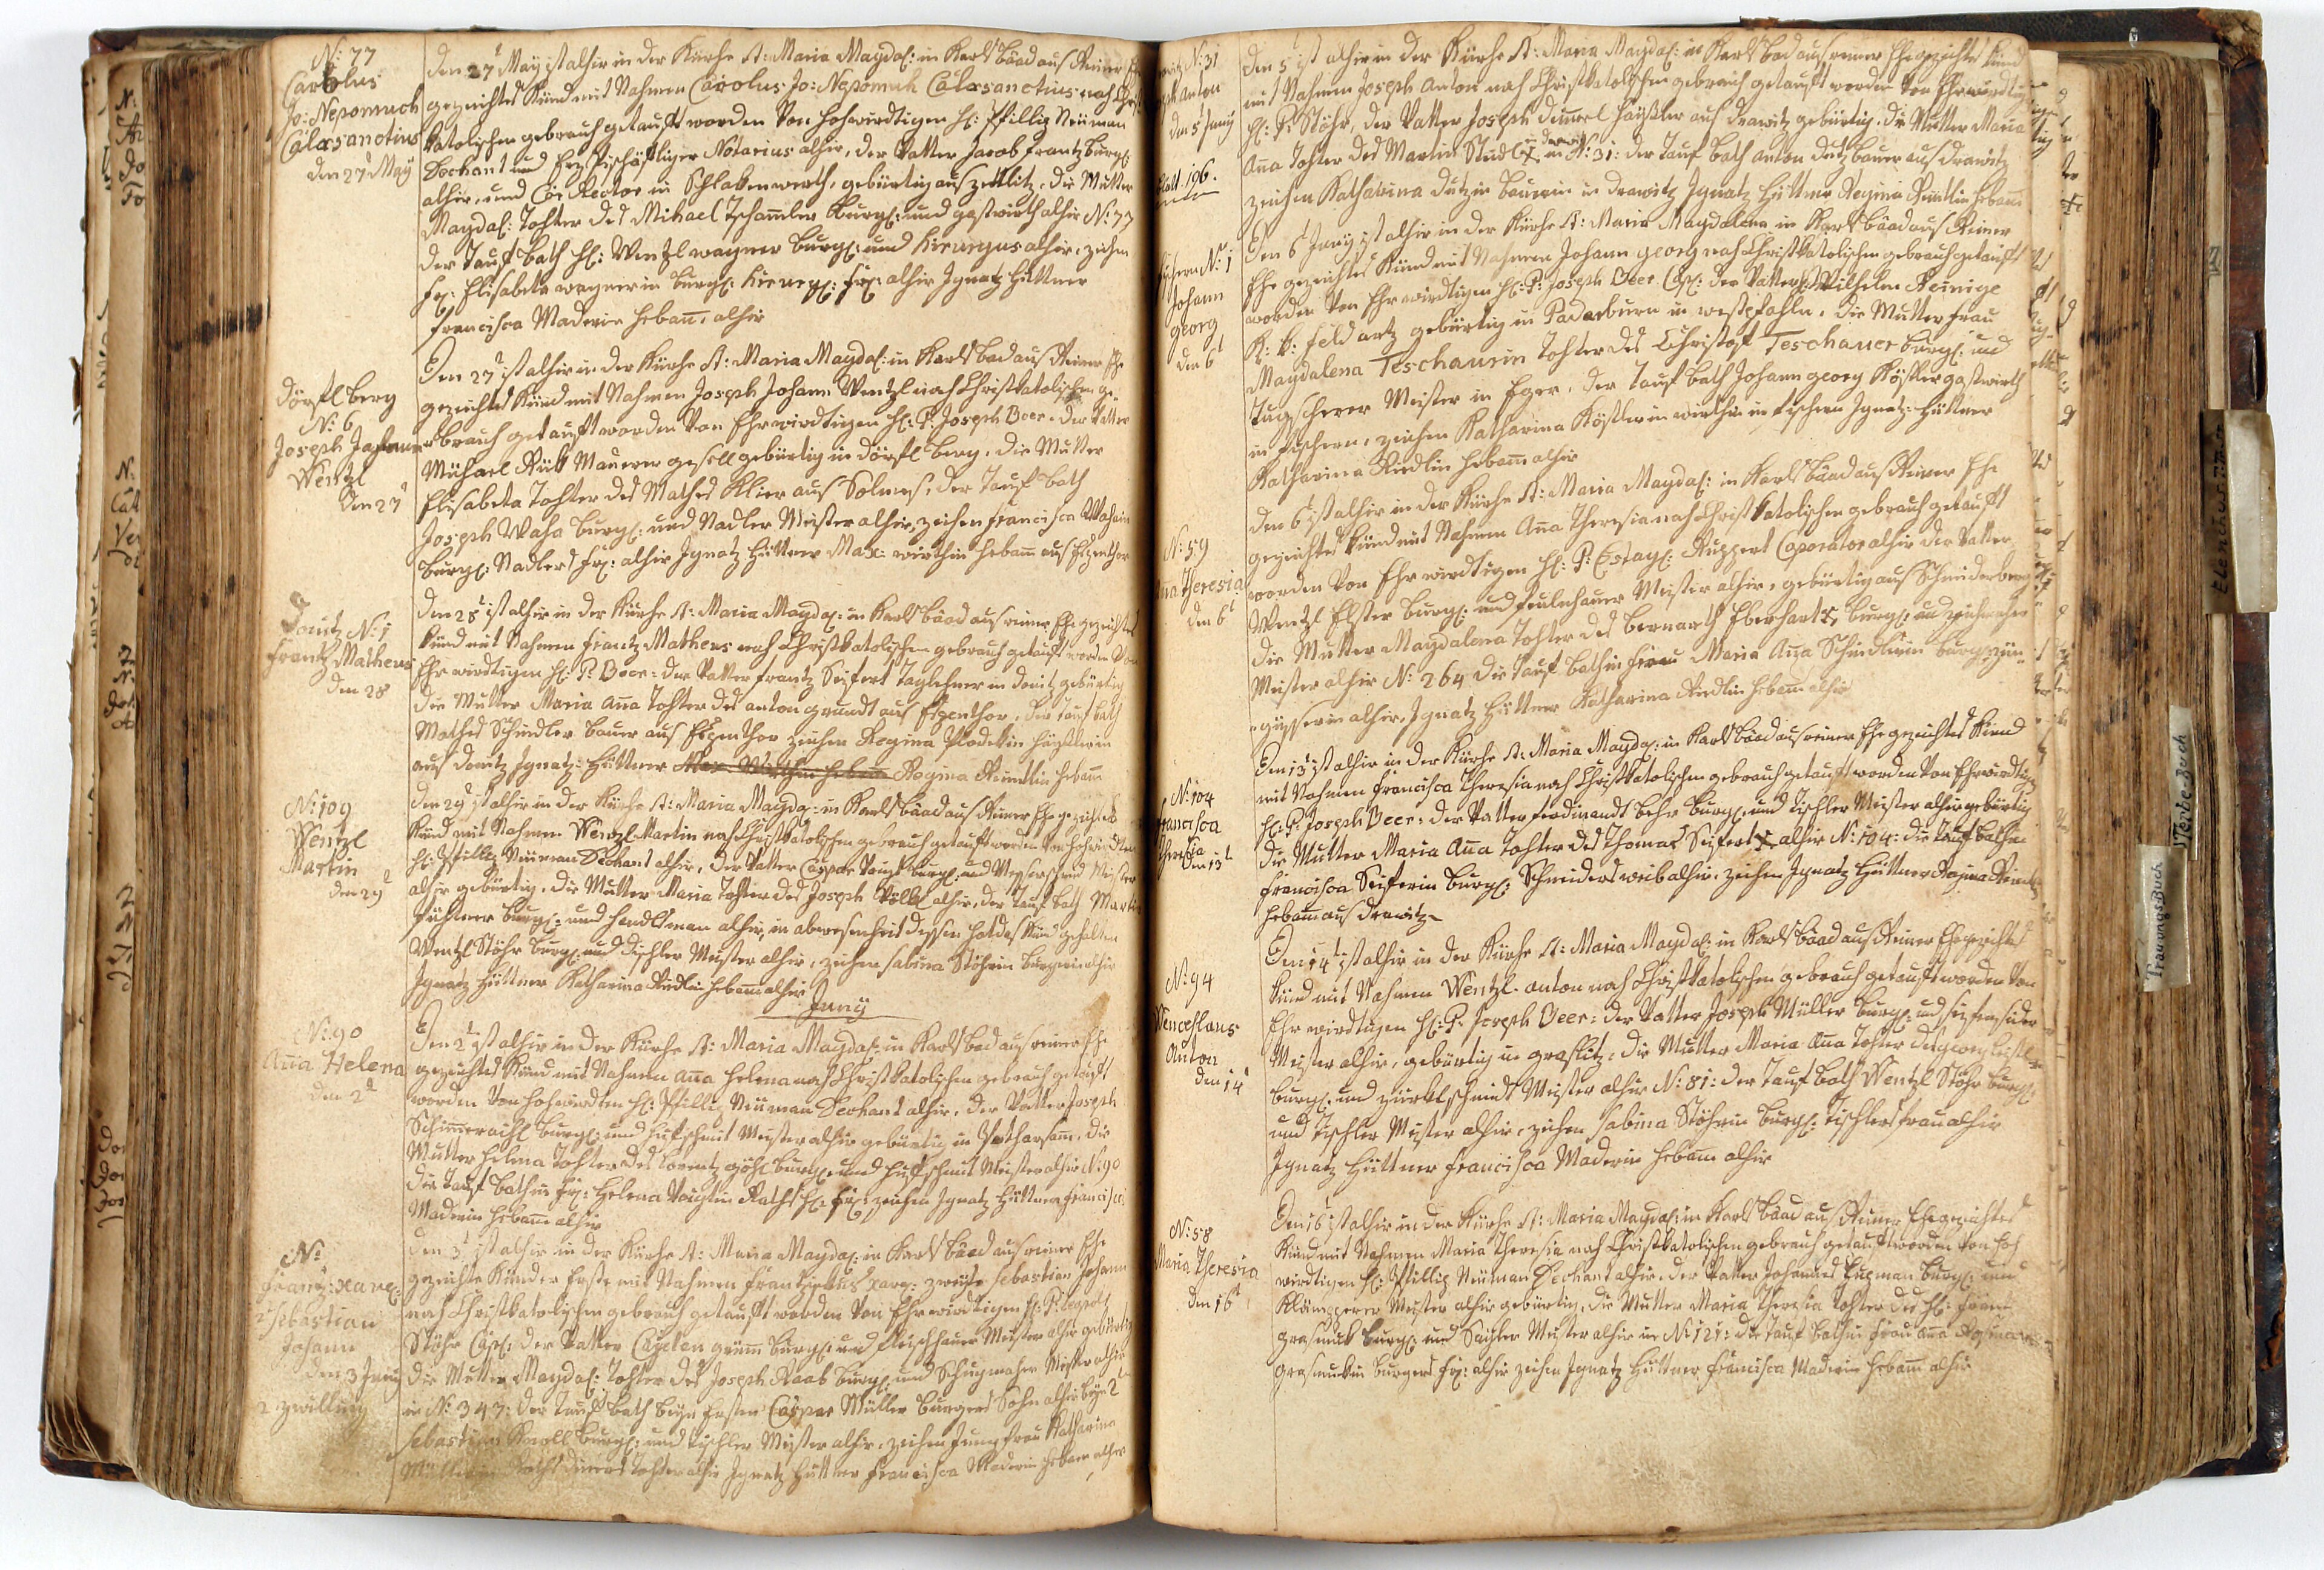 N: 77
Carolus
Jo: Nepomuck
Calasanctius
den 27 May
den 27 May ist alhir in der Kürche St: Maria Magdal: in Karls Baad aus Reiner
gezeichtes Kind mit Nahmen Carolus Jo: Nepomuk Calasanctius nach
Katolischen gebrauch getaufft worden Von Hohwirdtigen H: Phillip Neüman
Dechant und Notarius alhir, der Vatter Jacob Frantz burg:
alhir, und Cor Rector in Schlakenwerth, gebürtig aus Zettlitz, die Mutter
Magdal: Tohter des Mihael Tschamler burg: und gastwirth alhir N: 77
der Tauf bath H: Wentzl wagner burg: und Kirurgus alhir, zeihen
Fr: Elisabeta wagnerin burg: Kirurg: Fr: alhir Ignatz Hüttner
Francisca Maderin Hebam, alhir
Dörfl berg
N: 6
Joseph Johann
Wentzl
den 27
Den 27 ist alhir in der Kürche St: Maria Magdal: in Karls Bad aus Reiner Ehe
gezeichtes Kind mit Nahmen Joseph Johann Wentzl nach Christkatolischen ge-
brauch getaufft worden Von Ehrwirdtigen H: P: Joseph Beer. der Vatter
Mihael Maurer gesell gebürtig in Dörfl berg, die Mutter
Elisabeta Tohter des Mathes Klier aus Solmus, der Tauf bath
Joseph Waha burg: und Nadler Meister alhir, zeihen Francisca Wahain
burg: Nadlers Fr: alhir Ignatz Hüttner Max: wirthin Hebam aus
Donitz N: 1
Frantz Matheus
den 28
den 28 ist alhir in der Kürche St: Maria Magdal: in Karls Baad aus reiner Ehe gezeichtes
Kind mit Nahmen Frantz Matheus nach Christkatolischen gebrauch getaufft worden Von
Ehrwirdtigen H: P: Beer: der Vatter Frantz Seifert Taglehner in Donitz gebürtig
die Mutter Maria Ana Tohter des anton grundt aus Espenthor, der Tauf bath
Mathes Schindler bauer aus Espenthor zeihen Regina Plodekin Häußlerin
aus Donitz Ignatz: Hüttner Regina Hebam
N: 109
Wentzl
Martin
den 29
den 29 ist alhir in der Kürche St: Maria Magd: in Karls Baad aus Reiner Ehe gezeichtes
Kind mit Nahmen Wentzl Martin nach Christkatolischen gebrauch getaufft worden Von
H: Phillip Neüman Dechant alhir, der Vatter Caspar Voigt burg: und Meister
alhir gebürtig, die Mutter Maria Tohter des Joseph Völkl alhir, der Tauf bath Martin
burg: und Handlsman alhir, in abwesenheit dessen hat das Kind gehalten
Wentzl Stöhr burg: und Tischler Meister alhir, zeihen Sabina Stöhrin burgerin alhir
Ignatz Hüttner Katharina Riedlin Hebam alhir
Juny
N: 90
Ana Helena
den 2
Den 2 ist alhir in der Kürche St: Maria Magdal: in Karls Bad aus reiner Ehe
gezeichtes Kind mit Nahmen ana Helena nach Christkatolischen gebrauch getaufft
worden Von Hohwirdten H: Phillip Neüman Dechant alhir, der Vatter Joseph
burg: und Hufschmit Meister alhir gebürtig in die
Mutter Helena Tohter des Lorentz burg: und Hufschmit Meister alhir N: 90
die Tauf bathin Fr: Helena Voightin Raths H: Fr: zeihen Ignatz Hüttner Francisca
Maderin Hebam alhir
N:
Frantz: Xave:
2 Sebastian
Johann
den 3 Juny
2 Zwilling
den 3 ist alhir in der Kürche St: Maria Magdal: in Karls Baad aus reiner Ehe
gezeichte Kinder Erste mit Nahmen Frantziskus Xave: zweite Sebastian Johann
nach Christkatolischen gebrauch getaufft worden Von Ehrwirdtigen H: P:
Stöhr Cap: der Vatter Cajetan grim burg: und Fleischhauer Meister alhir gebürtig
die Mutter Magdal: Tohter des Joseph Raab burg: und Schugmaher Meister alhir
in N: 347: der Tauf bath beym Ersten Caspar Müller burgers Sohn alhir beym 2
Sebastian Knoll burg: und Tischler Meister alhir, zeihen Jungfrau Katharina
Tohter alhir Ignatz Hüttner Francisca Maderin Hebam alhir
N: 31
anton
den 5 Juny
Blatt. 196.
Den 5 ist alhir in der Kürche St: Maria Magdal: in Karls bad aus reiner Ehe gezeichtes Kind
mit Nahmen Joseph Anton nach Christkatolischen gebrauch getaufft worden Von Ehrwirdtig
H: P: Stöhr, der Vatter Joseph Häußler aus Drawitz gebürtig. die Mutter Maria
Ana Tohter des Martin in N: 31: der Tauf bath anton bauer aus Drawitz
zeihen Katharina bäurin in Drawitz Ignatz Hüttner Regina Hebam
Fischern N: 1
Johann
georg
den 6
Den 6 Juny ist alhir in der Kürche St: Maria Magdalena in Karls Baad aus Reiner
Ehe gezeichtes Kind mit Nahmen Johann georg nach Christkatolischen gebrauch getaufft
worden Von Ehrwirdtigen H: P: Joseph Beer Cap: der Vatter H: Wilhelm Reinige
K: K: Feldartz gebürtig in Paderburn in westpfahln. die Mutter Frau
Magdalena Teschaurin Tohter des Christof Teschauer burg: und
Tugscherer Meister in Eger. der Tauf bath Johann georg Kößler gastwirth
in Fischern, zeihen Katharina Kößlerin wirthin in Fischern Ignatz Hüttner
Katharina Riedlin Hebam alhir
N: 59
Ana Theresia
den 6
den 6 ist alhir in der Kürche St: Maria Magdal: in Karls Baad aus Reiner Ehe
gezeichtes Kind mit Nahmen Ana Theresia nach Christkatolischen gebrauch getaufft
worden Von Ehrwirdtigen H: P: Ruppert Coperator alhir der Vatter
Wentzl Elster burg: und Feulnhauer Meister alhir, gebürtig aus Schneiderberg
die Mutter Magdalena Tohter des bernarth Eberhart burg: und
Meister alhir N: 264 die Tauf bathin Frau Maria Ana Schindlerin burg: Zün-
gysserin alhir, Ignatz Hüttner Katharina Riedlin Hebam alhir
N: 104
Francisca
Theresia
den 13
Den 13 ist alhir in der Kürche St: Maria Magdal: in Karls Baad aus reiner Ehe gezeichtes Kind
mit Nahmen Francisca Theresia nach Christkatolischen gebrauch getaufft worden Von Ehrwirdtig
H: P: Joseph Beer: der Vatter Ferdinandt behr burg: und Tischler Meister alhir gebürtig
die Mutter Maria Ana Tohter des Thomas Seifert alhir N: 104: die Tauf bathin
Francisca Seiferin burg: Schneiders weib alhir, zeihen Ignatz Hüttner Regina
Hebam aus Drawitz
N: 94
Wenceslaus
Anton
den 14
Den 14 ist alhir in der Kürche St: Maria Magdal: in Karls Baad aus Reiner Ehe gezeichtes
Kind mit Nahmen Wentzl anton nach Christkatolischen gebrauch getaufft worden Von
Ehrwirdtigen H: P: Joseph Beer: der Vatter Joseph Müller burg: und seifensider
Meister alhir, gebürtig in graslitz: die Mutter Maria Ana Tohter des georg
burg: und Meister alhir N: 81: der Tauf bath Wentzl Stöhr burg:
und Tischler Meister alhir, zeihen Sabina Stöhrin burg: Tischlers frau alhir
Ignatz Hüttner Francisca Maderin Hebam alhir
N: 58
Maria Theresia
den 16
Den 16 ist alhir in der Kürche St: Maria Magdal: in Karls Baad aus Reiner Ehe gezeichtes
Kind mit Nahmen Maria Theresia nach Christkatolischen gebrauch getaufft worden Von Hoh
wirdtigen H: Phillip Neüman Dechant alhir, der Vatter Johannes burg: und
Klampperer Meister alhir gebürtig, die Mutter Maria Theresia Tohter des H: Frantz
grasmuk burg: und Meister alhir in N: 121: die Tauf bathin Frau Ana
grasmukin burgers Fr: alhir zeihen Ignatz Hüttner Francisca Maderin Hebam alhir
Trauungs Buch
Sterbe-Buch